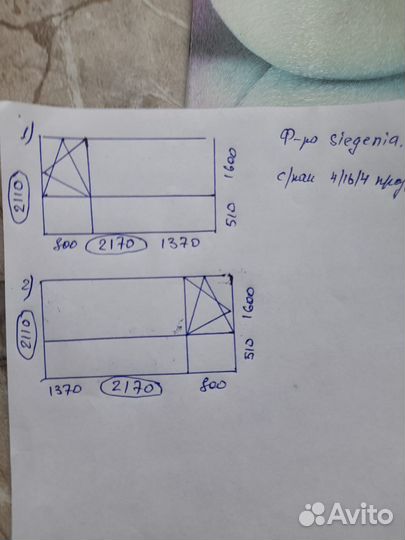 1)
2110
1600
510
800 2170 1370
Ф-ро Siegenia.
с/пак 4/16/4
2)
2110
1600
510
1370 2170 800
Avito